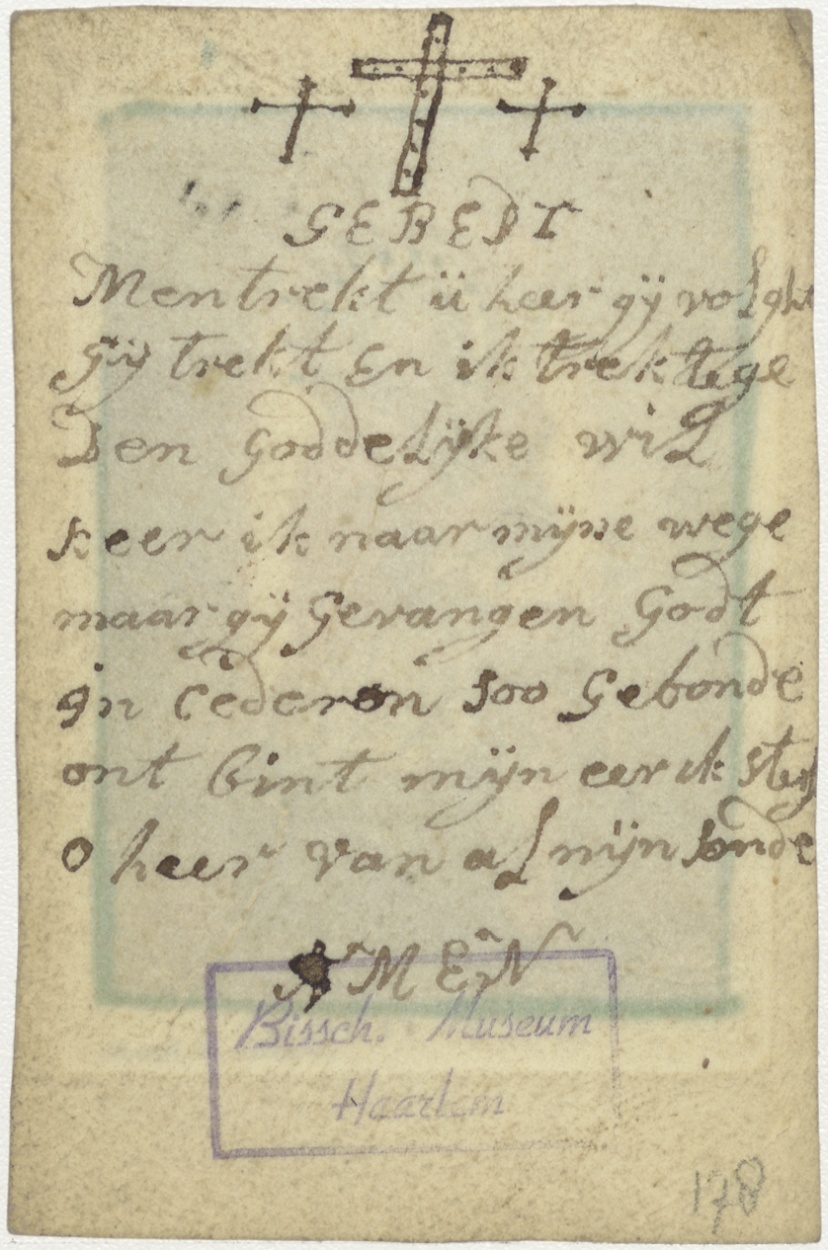 GEBEDT
Men trekt ü heer gÿ volght
Gÿ trekt En ik trek tege
Den Goddelÿke wil
keer ik naar mÿne wege
maar gÿ Gevangen Godt
in cederon soo Gebonde
ont bint mÿn eer ik sterf
o heer van al mÿn sonde
AMEN
Bissch. Museum
Haarlem
178